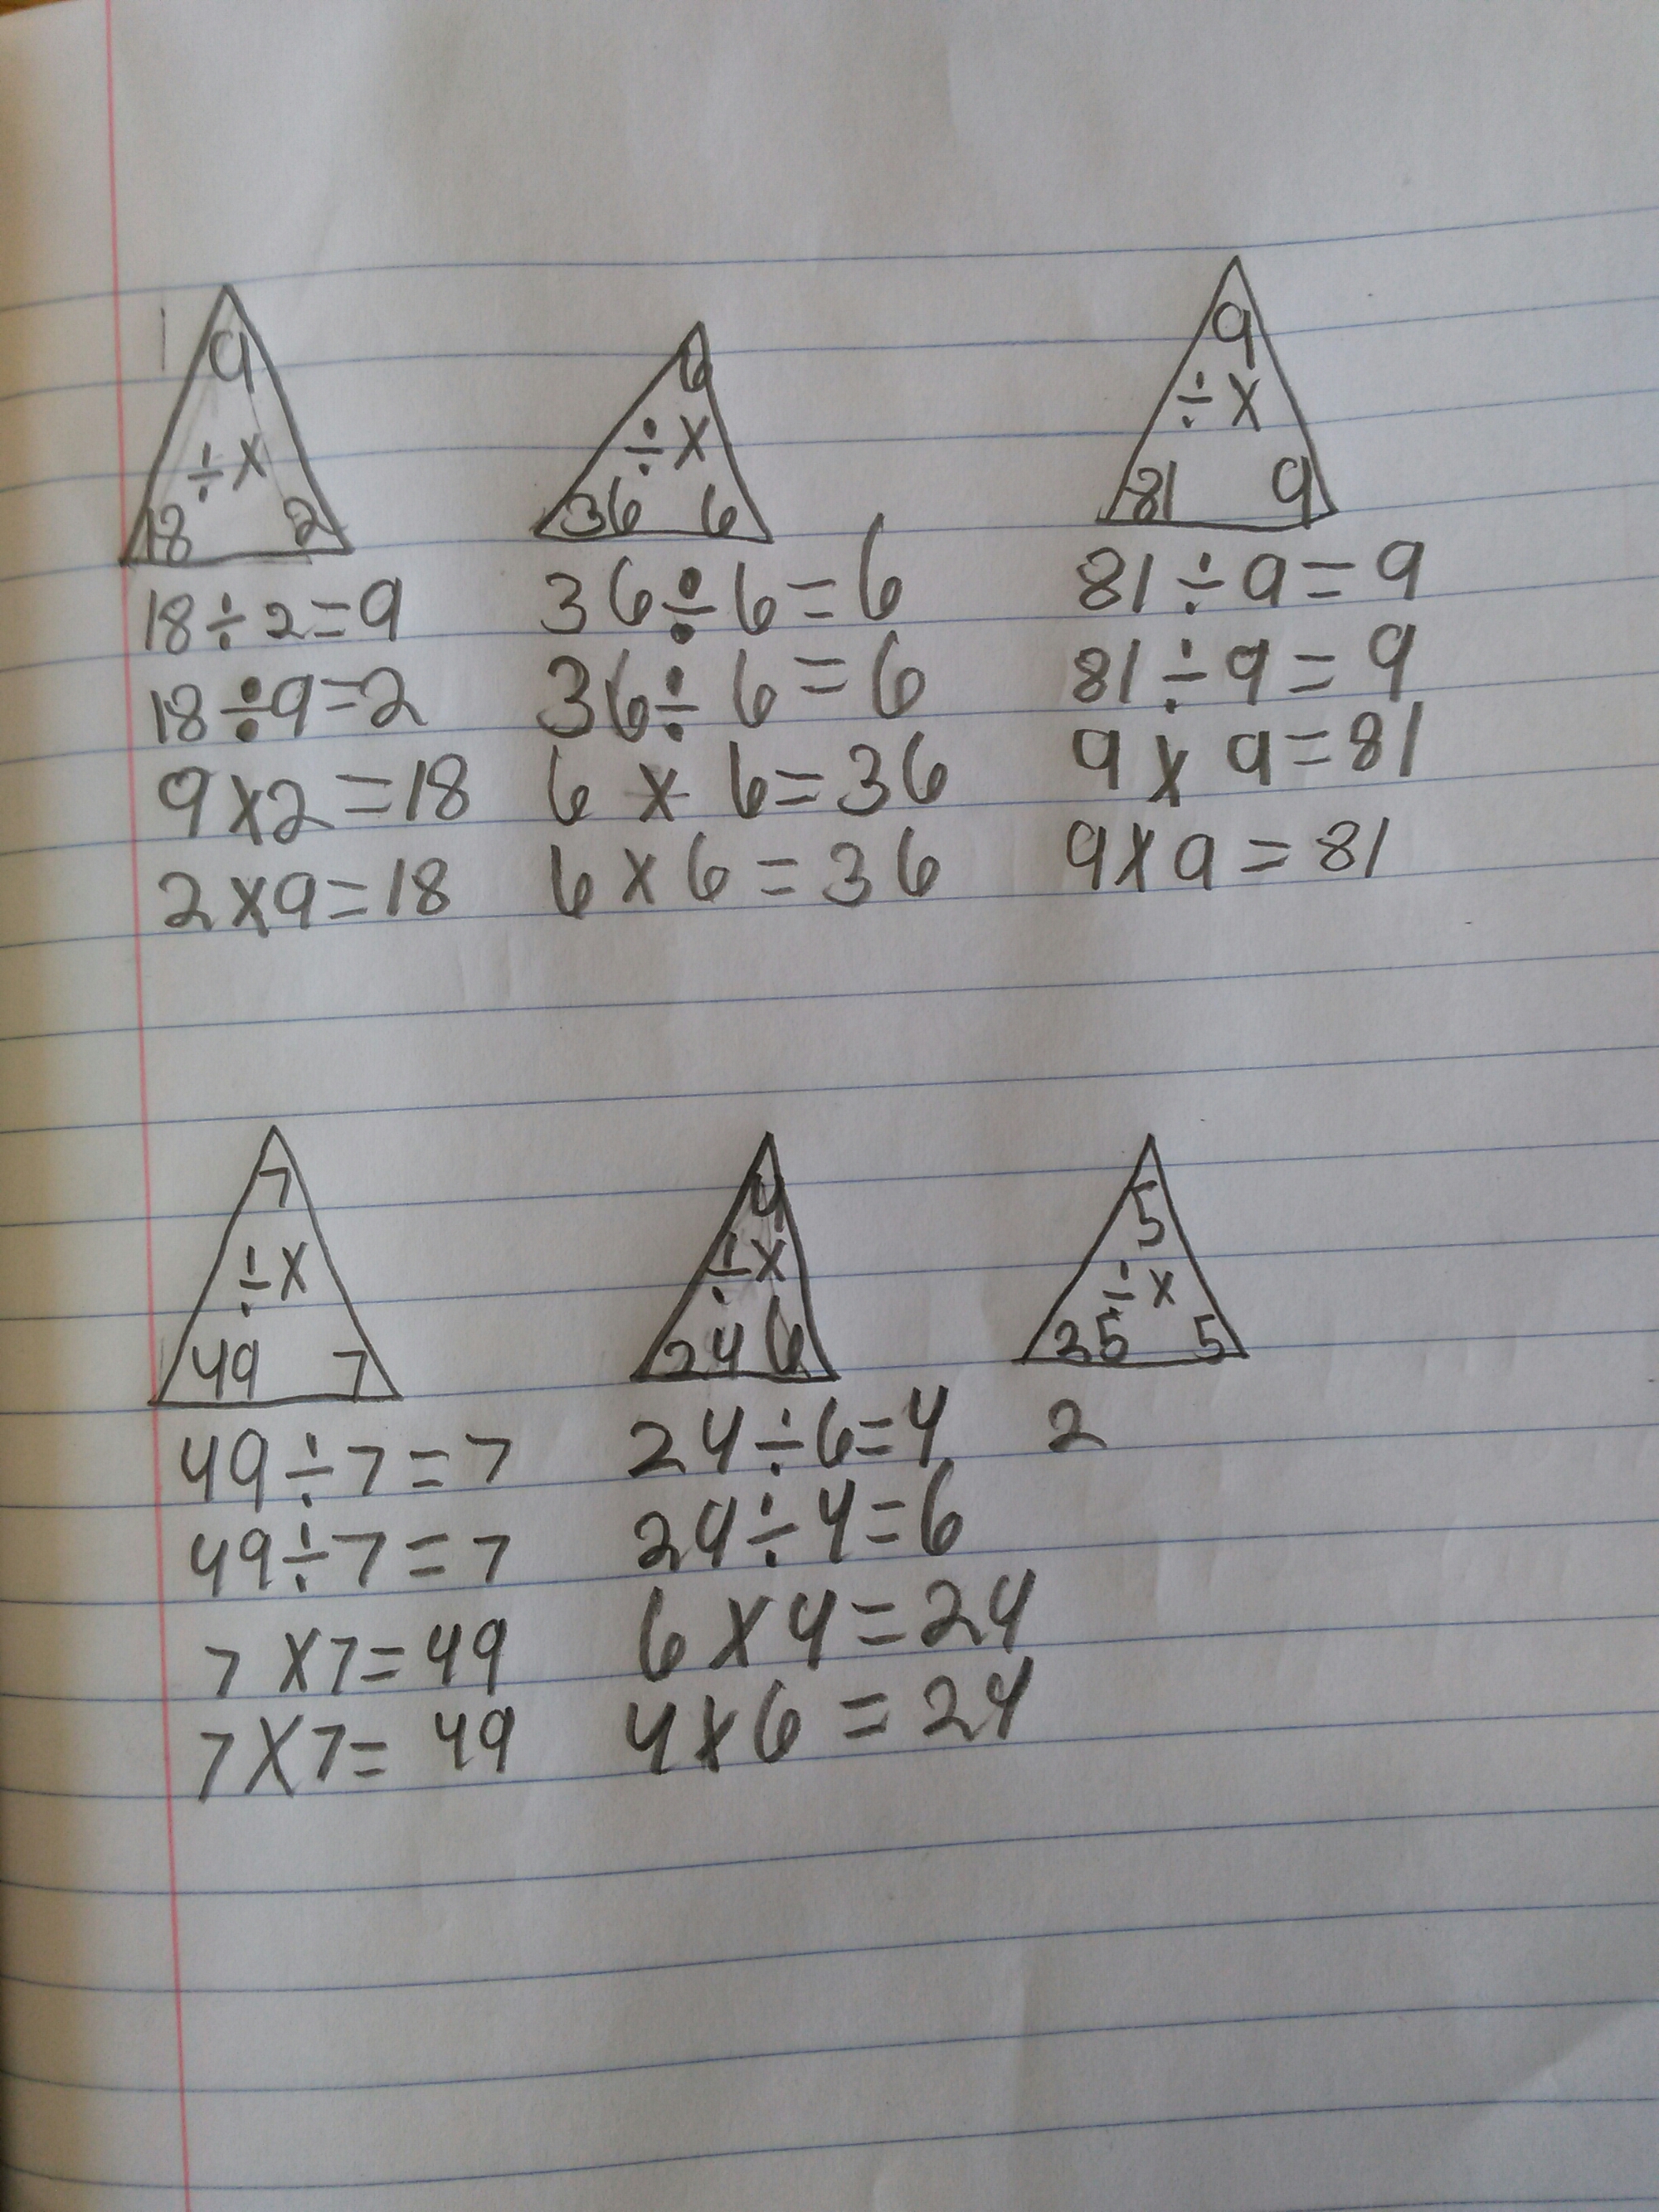 9
÷ x
18 2
18÷2=9
18÷9=2
9x2=18
2x9=18
6
÷ x
36 6
36÷6=6
36÷6=6
6 x 6=36
6 x 6=36
9
÷ x
81 9
81÷9=9
81÷9=9
9 x 9=81
9x9=81
7
÷ x
49 7
49÷7=7
49÷7=7
7 x7=49
7x7=49
4
÷ x
24 6
24÷6=4
24÷4=6
6 x 4=24
4x6=24
5
÷ x
25 5
2